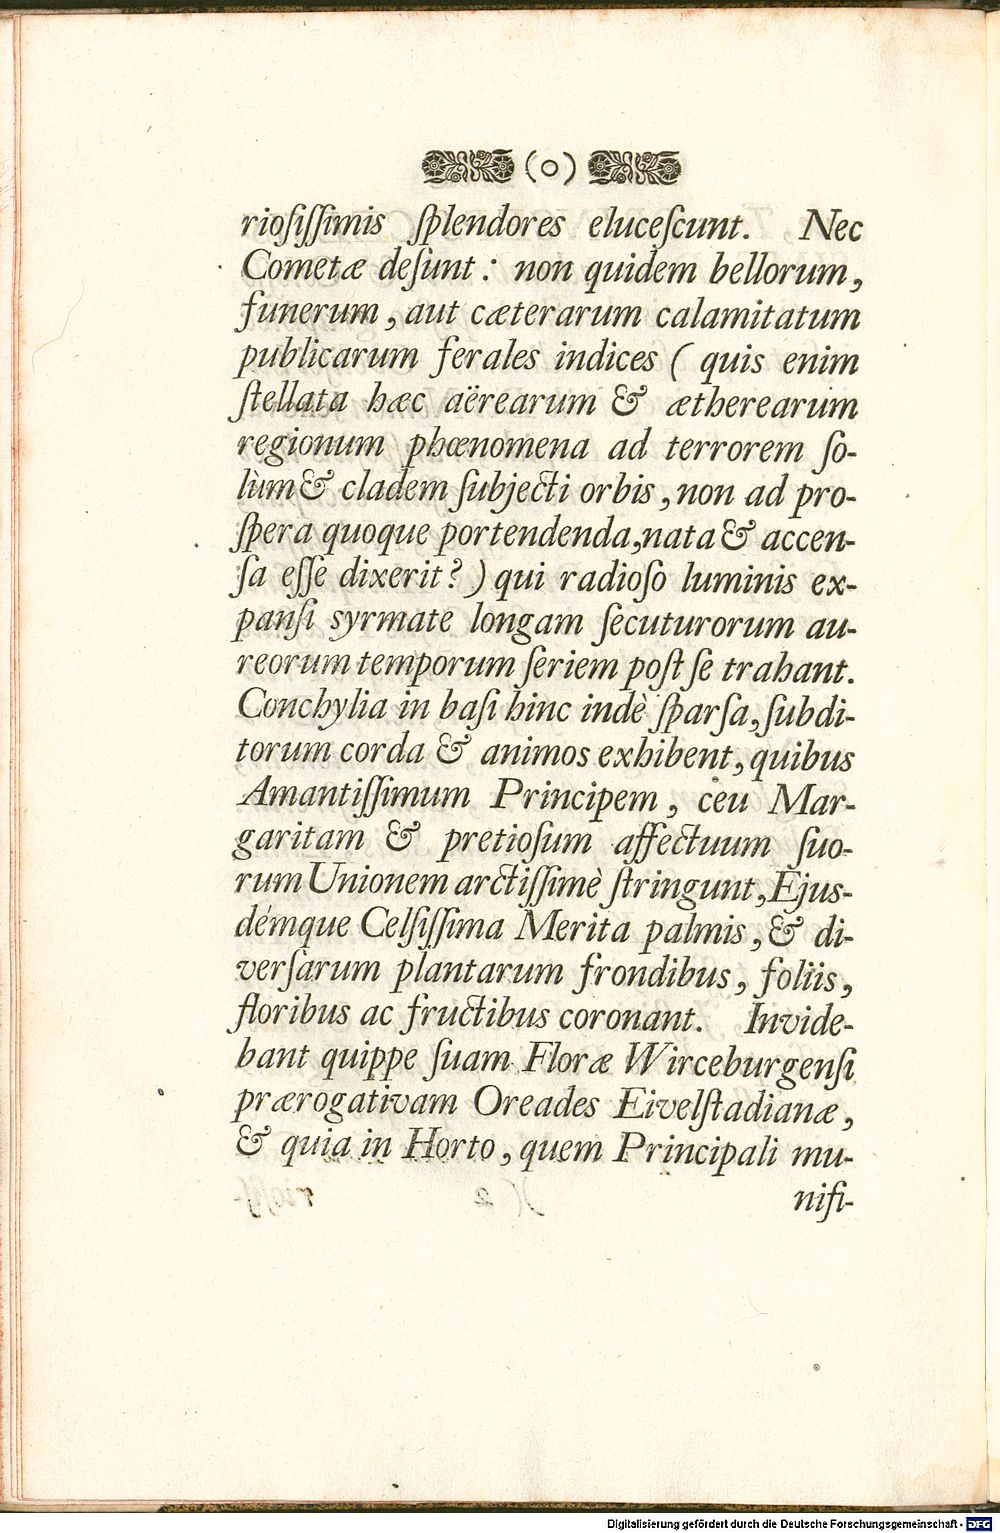 (o)
rioſiſſimis ſplendores eluceſcunt. Nec
Cometæ deſunt: non quidem bellorum,
funerum, aut cæterarum calamitatum
publicarum ferales indices ( quis enim
ſtellata hæc aërearum & ætherearum
regionum phœnomena ad terrorem ſo-
lùm & cladem ſubjecti orbis, non ad pro-
ſpera quoque portendenda, nata & accen-
ſa eſſe dixerit? ) qui radioſo luminis ex-
panſi syrmate longam ſecuturorum au-
reorum temporum ſeriem poſt ſe trahant.
Conchylia in baſi hinc indè ſparſa, ſubdi-
torum corda & animos exhibent, quibus
Amantiſſimum Principem, ceu Mar-
garitam & pretioſum affectuum ſuo-
rum Unionem arctiſſimè ſtringunt, Ejus-
démque Celſiſſima Merita palmis, & di-
verſarum plantarum frondibus, foliis,
floribus ac fructibus coronant. Invide-
bant quippe ſuam Floræ Wirceburgenſi
prærogativam Oreades Eivelſtadianæ,
& quia in Horto, quem Principali mu-
nifi-
Digitalisierung gefördert durch die Deutsche Forschungsgemeinschaft - DFG